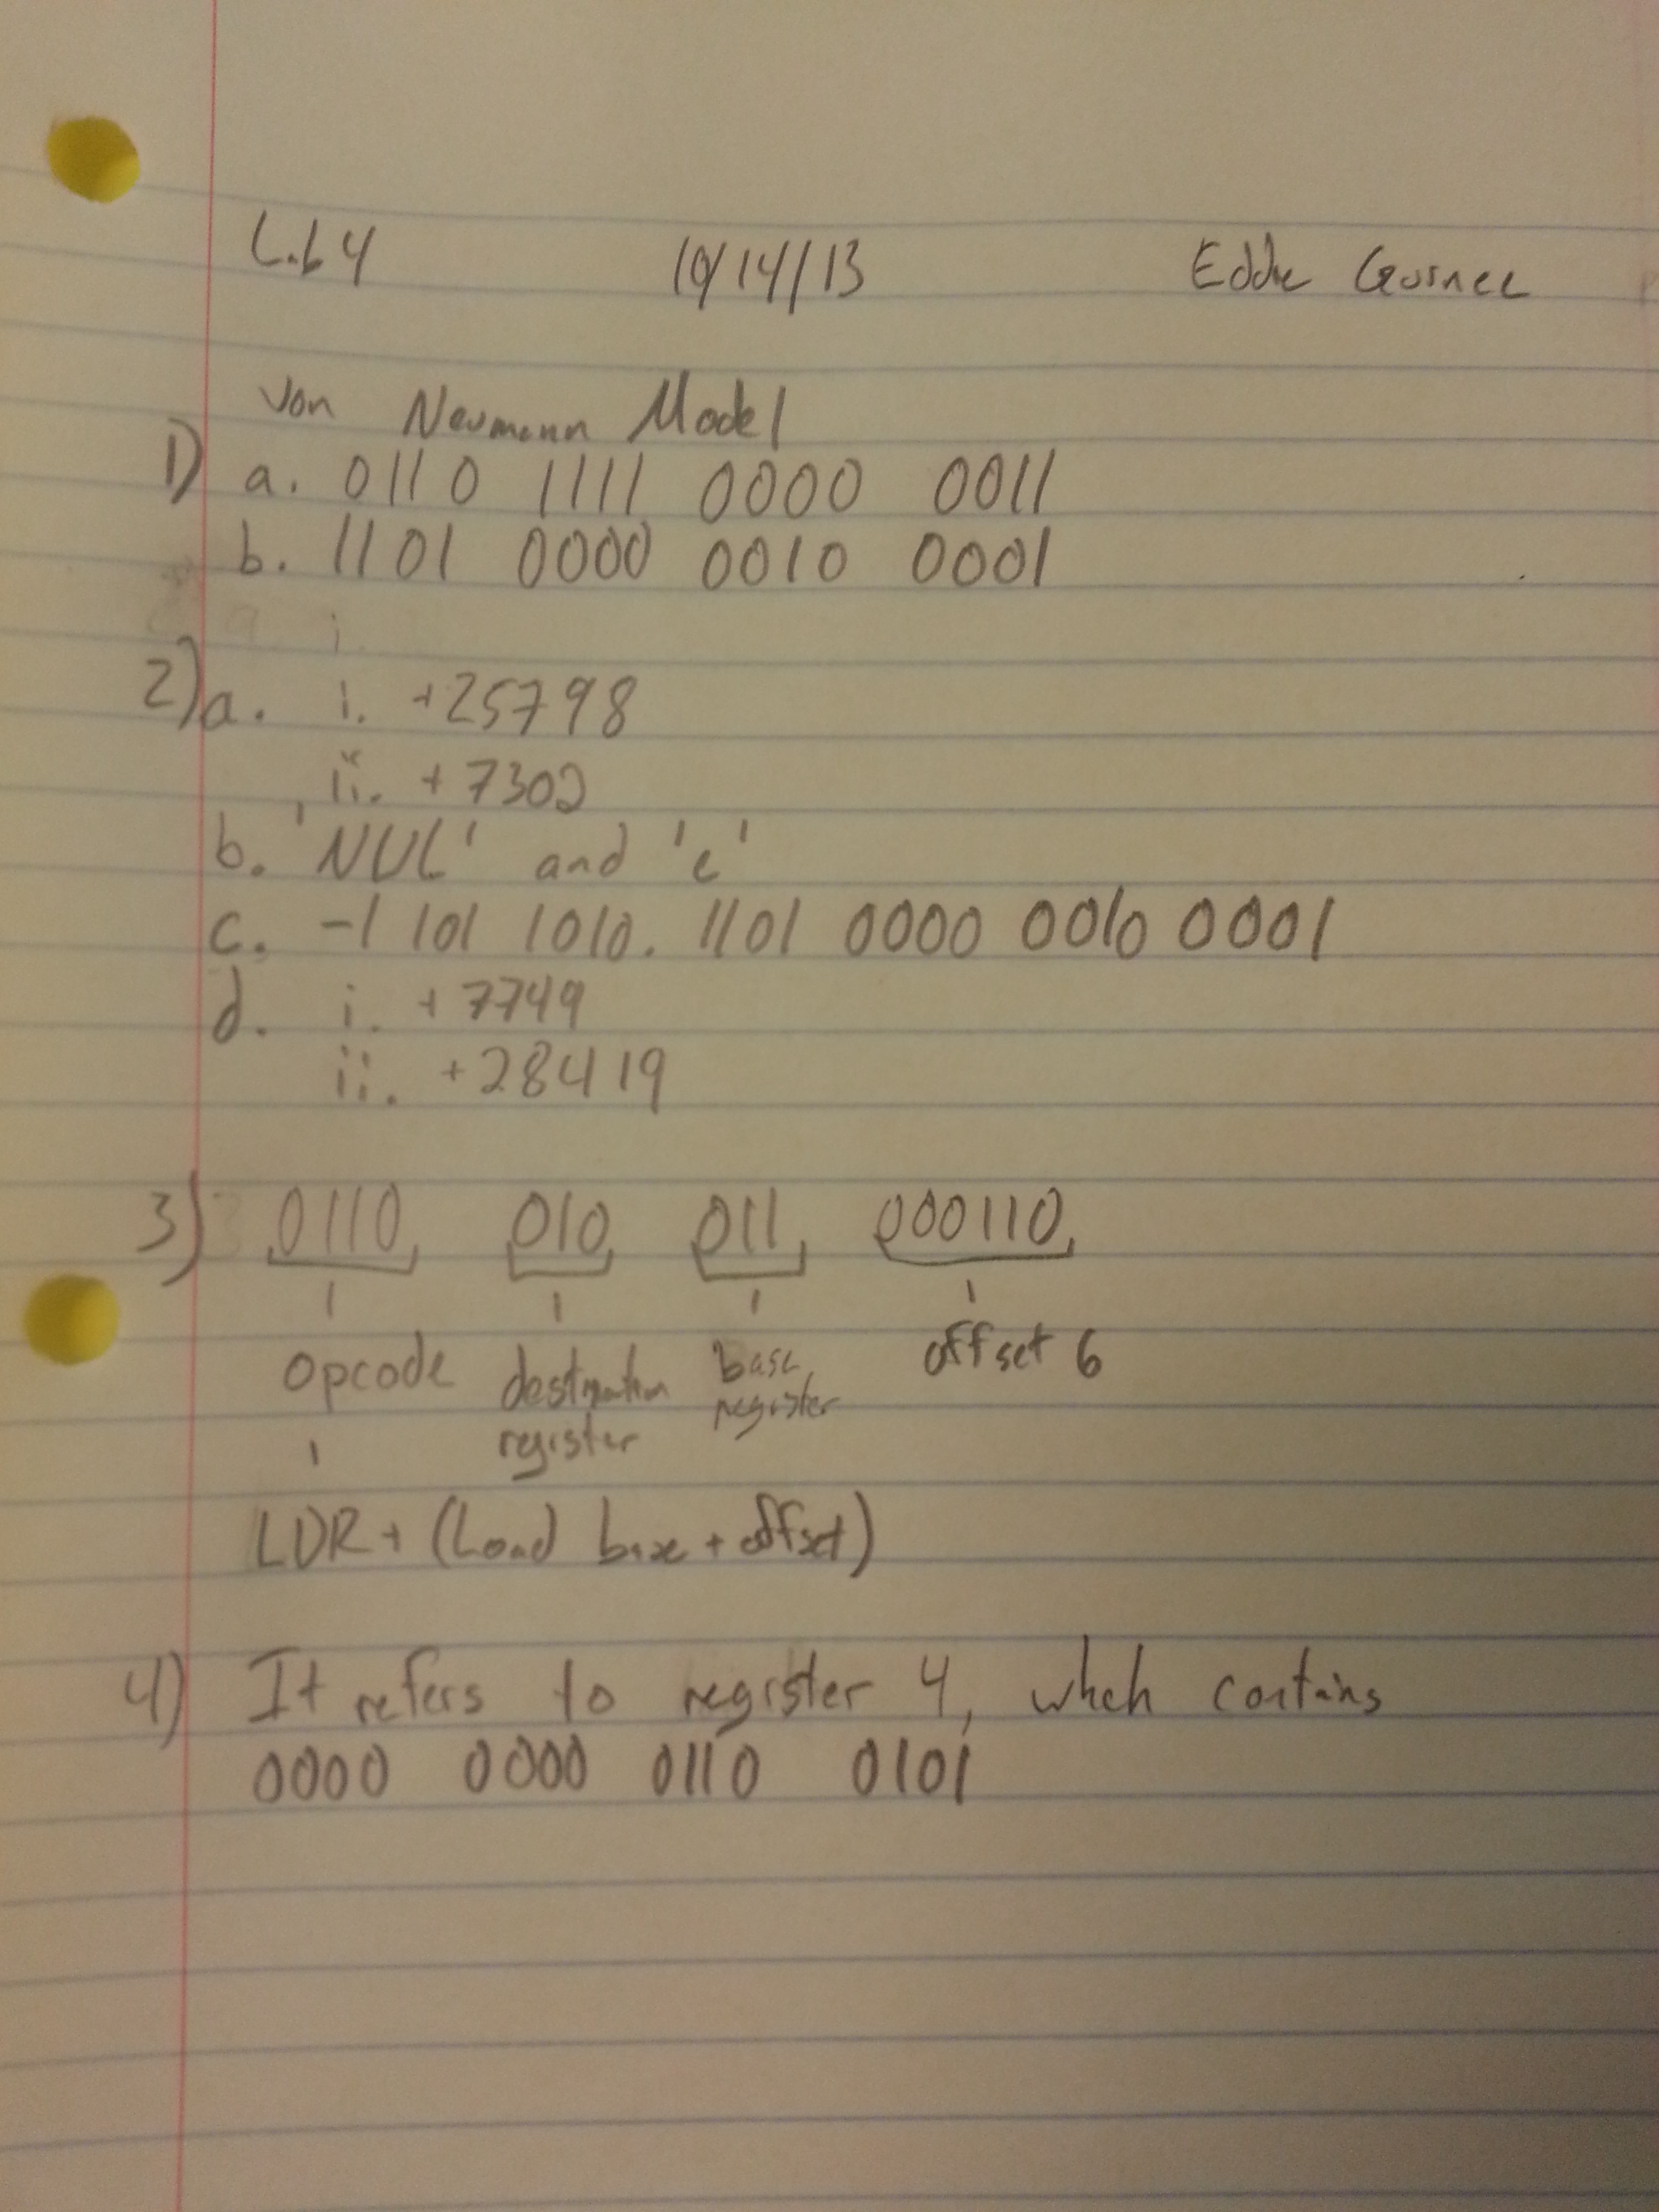 Lab 4 10/14/13 Eddie Gurnee
Von Neumann Model
1) a. 0110 1111 0000 0011
b. 1101 0000 0010 0001
2) a. i. +25798
ii. +7302
b. 'NUL' and 'e'
c. -1 101 1010. 1101 0000 0010 0001
d. i. +7749
ii. +28419
3) 0110 010 011 000110
opcode destination register base register offset 6
LDR + (Load base + offset)
4) It refers to register 4, which contains
0000 0000 0110 0101